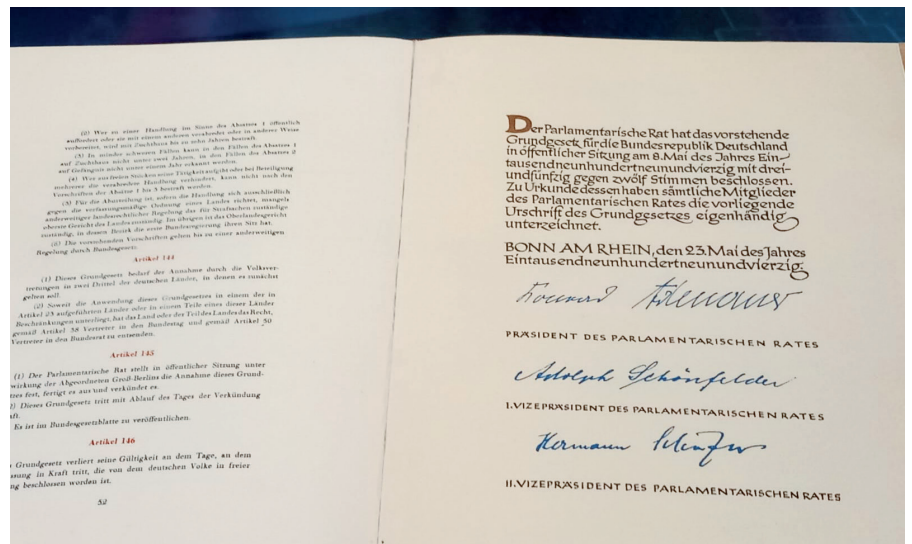 (2) Wer zu einer Handlung im Sinne des Absatzes 1 öffentlich
auffordert oder sie mit einem anderen verabredet oder in anderer Weise
vorbereitet, wird mit Zuchthaus bis zu zehn Jahren bestraft.
(3) In minder schweren Fällen kann in den Fällen des Absatzes 1
auf Zuchthaus nicht unter zwei Jahren, in den Fällen des Absatzes 2
auf Gefängnis nicht unter einem Jahr erkannt werden.
(4) Wer aus freien Stücken seine Tätigkeit aufgibt oder bei Beteiligung
mehrerer die verabredete Handlung verhindert, kann nicht nach den
Vorschriften der Absätze 1 bis 3 bestraft werden.
(5) Für die Aburteilung ist, sofern die Handlung sich ausschließlich
gegen die verfassungsmäßige Ordnung eines Landes richtet, mangels
anderweitiger landesrechtlicher Regelung das für Strafsachen zuständige
oberste Gericht des Landes zuständig. Im übrigen ist das Oberlandesgericht
zuständig, in dessen Bezirk die erste Bundesregierung ihren Sitz hat.
(6) Die vorstehenden Vorschriften gelten bis zu einer anderweitigen
Regelung durch Bundesgesetz.
Artikel 144
(1) Dieses Grundgesetz bedarf der Annahme durch die Volksver-
tretungen in zwei Drittel der deutschen Länder, in denen es zunächst
gelten soll.
(2) Soweit die Anwendung dieses Grundgesetzes in einem der in
Artikel 23 aufgeführten Länder oder in einem Teile eines dieser Länder
Beschränkungen unterliegt, hat das Land oder der Teil des Landes das Recht,
gemäß Artikel 38 Vertreter in den Bundestag und gemäß Artikel 50
Vertreter in den Bundesrat zu entsenden.
Artikel 145
(1) Der Parlamentarische Rat stellt in öffentlicher Sitzung unter
wirkung der Abgeordneten Groß-Berlins die Annahme dieses Grund-
zes fest, fertigt es aus und verkündet es.
) Dieses Grundgesetz tritt mit Ablauf des Tages der Verkündung
aft.
Es ist im Bundesgesetzblatte zu veröffentlichen.
Artikel 146
Grundgesetz verliert seine Gültigkeit an dem Tage, an dem
assung in Kraft tritt, die von dem deutschen Volke in freier
ng beschlossen worden ist.
52
Der Parlamentarische Rat hat das vorstehende
Grundgesetz für die Bundesrepublik Deutschland
in öffentlicher Sitzung am 8. Mai des Jahres Ein-
tausendneunhundertneunundvierzig mit drei-
undfünfzig gegen zwölf Stimmen beschlossen.
Zu Urkunde dessen haben sämtliche Mitglieder
des Parlamentarischen Rates die vorliegende
Urschrift des Grundgesetzes eigenhändig
unterzeichnet.
BONN AM RHEIN, den 23. Mai des Jahres
Eintausendneunhundertneunundvierzig.
Konrad Adenauer
PRÄSIDENT DES PARLAMENTARISCHEN RATES
Adolph Schönfelder
I. VIZEPRÄSIDENT DES PARLAMENTARISCHEN RATES
Hermann Schäfer
II. VIZEPRÄSIDENT DES PARLAMENTARISCHEN RATES